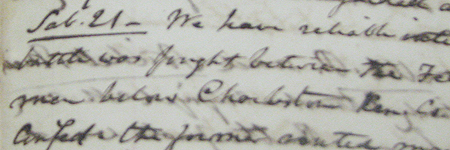 Sab. 21 - We have reliable
battle was fought between the
men below Charleston
Confeds the former routed